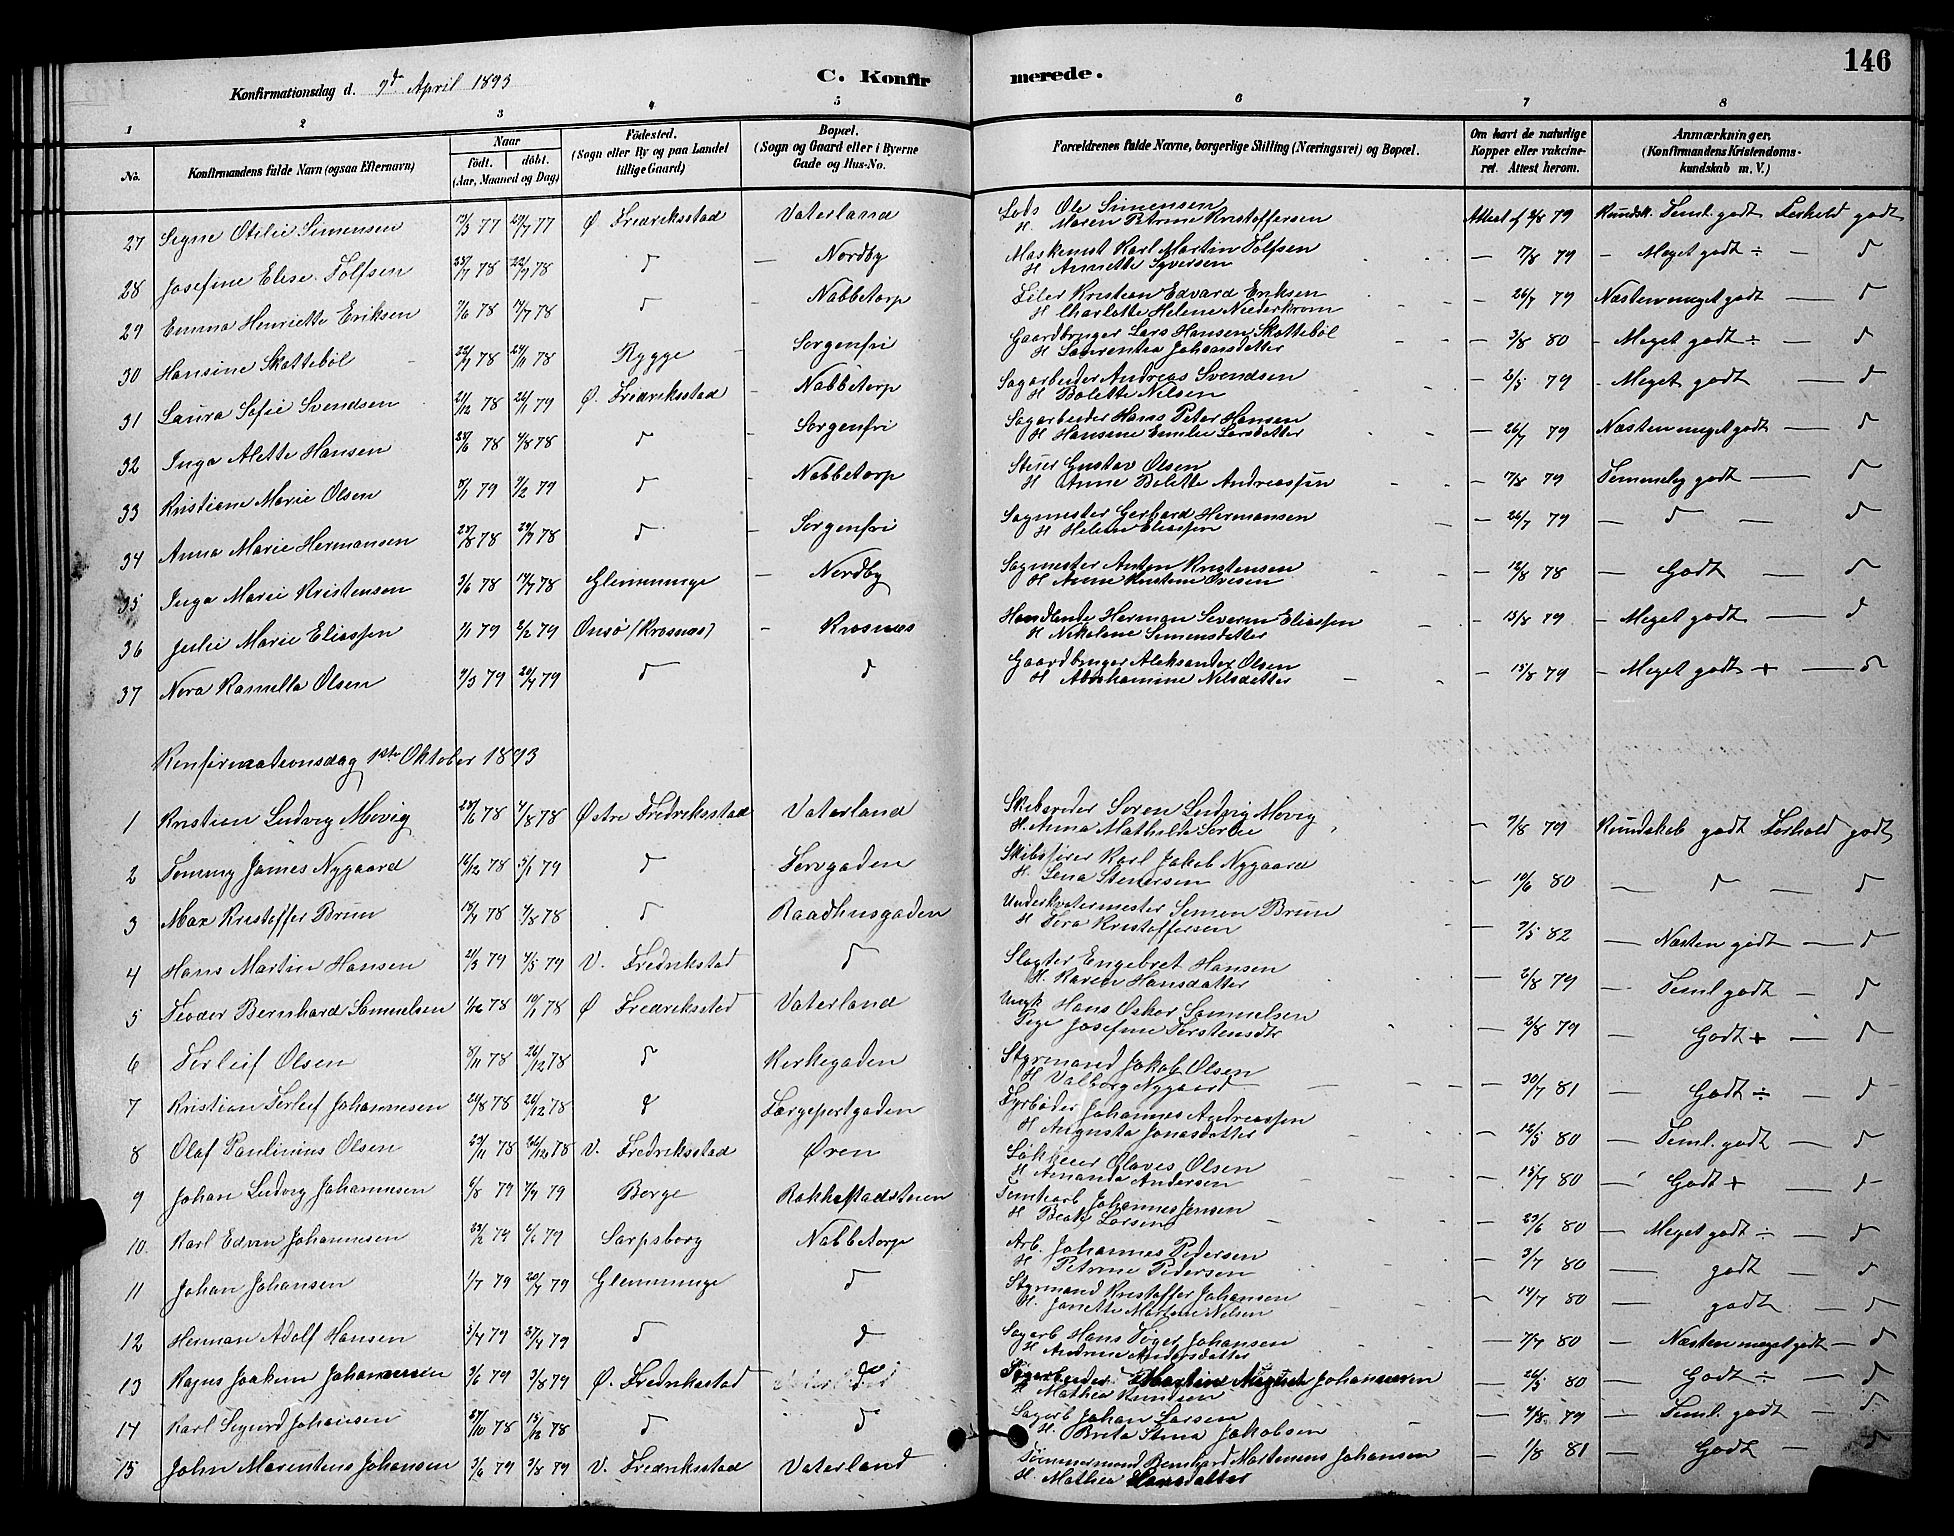 146
Konfirmationsdag d. 9de April 1893 C. Konfirmerede.
1 2 3 4 5 6 7 8
No. Konfirmandens fulde Navn (ogsaa Efternavn) Naar födt. döbt. (Aar, Maaned og Dag) Födested. (Sogn eller By og paa Landet tillige Gaard) Bopæl. (Sogn og Gaard eller i Byerne Gade og Hus-No. Forældrenes fulde Navne, borgerlige Stilling (Næringsvei) og Bopæl. Om havt de naturlige Kopper eller vakcineret. Attest herom. Anmærkninger. (Konfirmandens Kristendomskundskab m. V.)
27 Signe Otilie Simensen 77 77 Ø Fredriksstad Vaterland Lods Ole Simensen H. Maren Petrine Kristoffersen Attest af 2/8 79 Kundsk. Teml. godt Forhold godt
28 Josefine Elise Tolfsen 78 78 d — Nordby Maskinist Karl Martin Tolfsen H Annette Syversen — 7/8 79 – Meget godt ÷ — d
29 Emma Henriette Eriksen 7/6 78 14/7 78 d — Nabbetorp Kristian Edvard Eriksen H Charlotte Helene Niederkrom — 26/7 79 Næsten meget godt — d
30 Hansine Skattebøl 78 24/11 78 Rygge – Sorgenfri Gaardbruger Lars Hansen Skattebøl H Laurentia Johansdatter — 3/8 80 – Meget godt ÷ — d
31 Laura Sofie Svendsen 21/12 78 26/1 79 Ø. Fredriksstad – Nabbetorp Sagarbeider Andreas Svendsen H Bolette Nilsen — 2/5 79 – Meget godt — d
32 Inga Alette Hansen 78 4/8 78 d – Sorgenfri Sagarbeider Hans Peter Hansen H Hansine Emilie Larsdatter — 26/7 79 Næsten meget godt — d
33 Kristiane Marie Olsen 79 9/2 79 d – Nabbetorp Gustav Olsen H Anne Bolette Andreassen — 79 Temmelig godt — d
34 Anna Marie Hermansen 78 29/9 78 d – Sorgenfri Sagmester Gerhard Hermansen H Helene Eliassen — 26/7 79 — d — d
35 Inga Marie Kristensen 3/6 78 14/7 78 Glemminge — Nordby Sagmester Anton Kristensen H Anne Kristine Ovesen — 12/8 78 — Godt — d
36 Julie Marie Eliassen 1/1 79 2/2 79 Onsø (Krosnæs) – Krosnæs Handlende Herman Severin Eliassen H Nikoline Simensdatter — 15/8 79 – Meget godt — d
37 Nora Kamilla Olsen 9/3 79 20/4 79 d d Gaardbruger Aleksander Olsen H Abrahamine Nilsdatter — 15/8 79 – Meget godt + — d
Konfirmationsdag 1ste Oktober 1893
1 Kristian Ludvig Movig 78 4/8 78 Østre Fredriksstad Vaterland Skibsreder Soren Ludvig Movig H. Anna Mathilde — 7/8 79 Kundskab godt Forhold godt
2 Tommy James Nygaard 16/12 78 5/1 79 d Torvgaden Skibsfører Karl Jakob Nygaard H. Lena Stenersen — 10/6 80 — d — d
3 Max Kristoffer Brun 78 4/8 78 d Raadhusgaden Underkvatermester Simon Brun H Tora Kristoffersen — 9/5 82 — Næsten godt — d
4 Hans Martin Hansen 21/3 79 4/5 79 V. Fredrikstad d Slagter Engebret Hansen H. Karen Hansdatter — 2/8 79 — Teml. godt — d
5 Teodor Bernhard Samuelsen 78 78 Ø Fredriksstad Vaterland Ungk Hans Oskar Samuelsen Pige Josefine Torstensdt — 2/8 79 — Godt + — d
6 Torleif Olsen 8/11 78 26/12 78 d Kirkegaden Styrmand Jakob Olsen H Valborg Nygaard — 30/7 81 — Godt ÷ — d
7 Kristian Torleif Johannesen 78 26/12 78 d Færgeportgaden Fyrbøder Johannes Andreassen H Augusta Jonasdatter — 12/5 80 — Teml. godt — d
8 Olaf Paulinius Olsen 78 26/12 78 V. Fredriksstad Øren Olaves Olsen H Amanda Andersen — 15/7 80 — Godt + — d
9 Johan Ludvig Johannesen 79 79 Borge Rakkestadsveien Johannes Jensen H Beate Larsen — 23/6 80 — Meget godt ÷ — d
10. Karl Edvin Johannesen 23/2 79 79 Sarpsborg Nabbetorp Arb. Johannes Pedersen H Petrine Pedersen — 3/7 80 — godt — d
11 Johan Johansen 1/7 79 20/7 79 Glemminge d Styrmand Kristoffer Johansen H. Janette Martine Nilsen — 14/7 80 — godt — d
12 Herman Adolf Hansen 5/4 79 27/4 79 d d Sagarb Hans Johansen H Andrine Andersdatter — 7/7 80 — Næsten meget godt — d
13 Joakim Johannesen 3/6 79 3/8 79 Ø. Fredrikstad Vaterland August Johannesen H Mathea Knudsen — 26/5 80 — Godt ÷ — d
14 Karl Sigurd Johansen 27/10 78 15/12 78 d d Sagarb Johan Larsen H. Brita Stina Jakobsen — 4/8 79 — Teml. godt — d
15 John Marentius Johansen 3/6 79 3/8 79 V. Fredriksstad Vaterland Tømmermand Bernhard Martenius Johansen H. Mathea Hansdatter — 1/8 81 — Godt — d